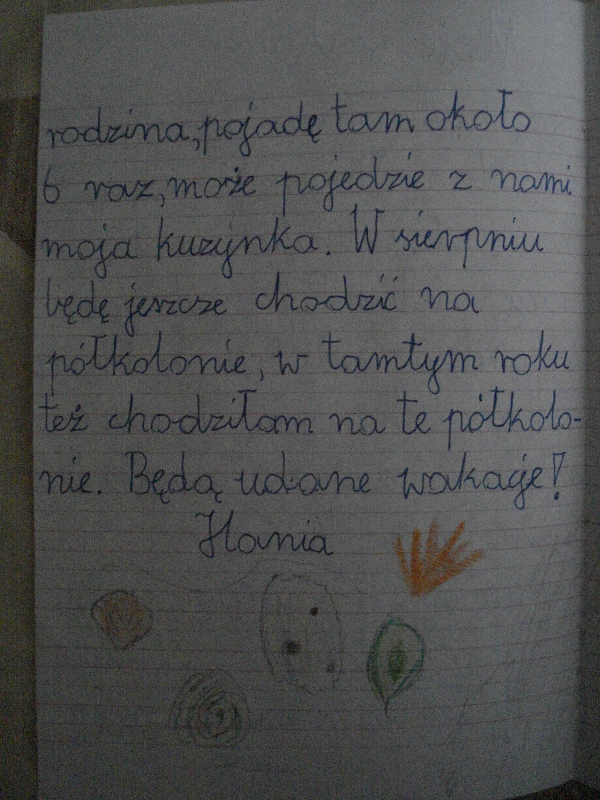 rodzina, pojadę tam około
6 raz, może pojedzie z nami
moja kuzynka. W sierpniu
będę jeszcze chodzić na
półkolonie, w tamtym roku
też chodziłam na te półkolo-
nie. Będą udane wakacje!
Hania